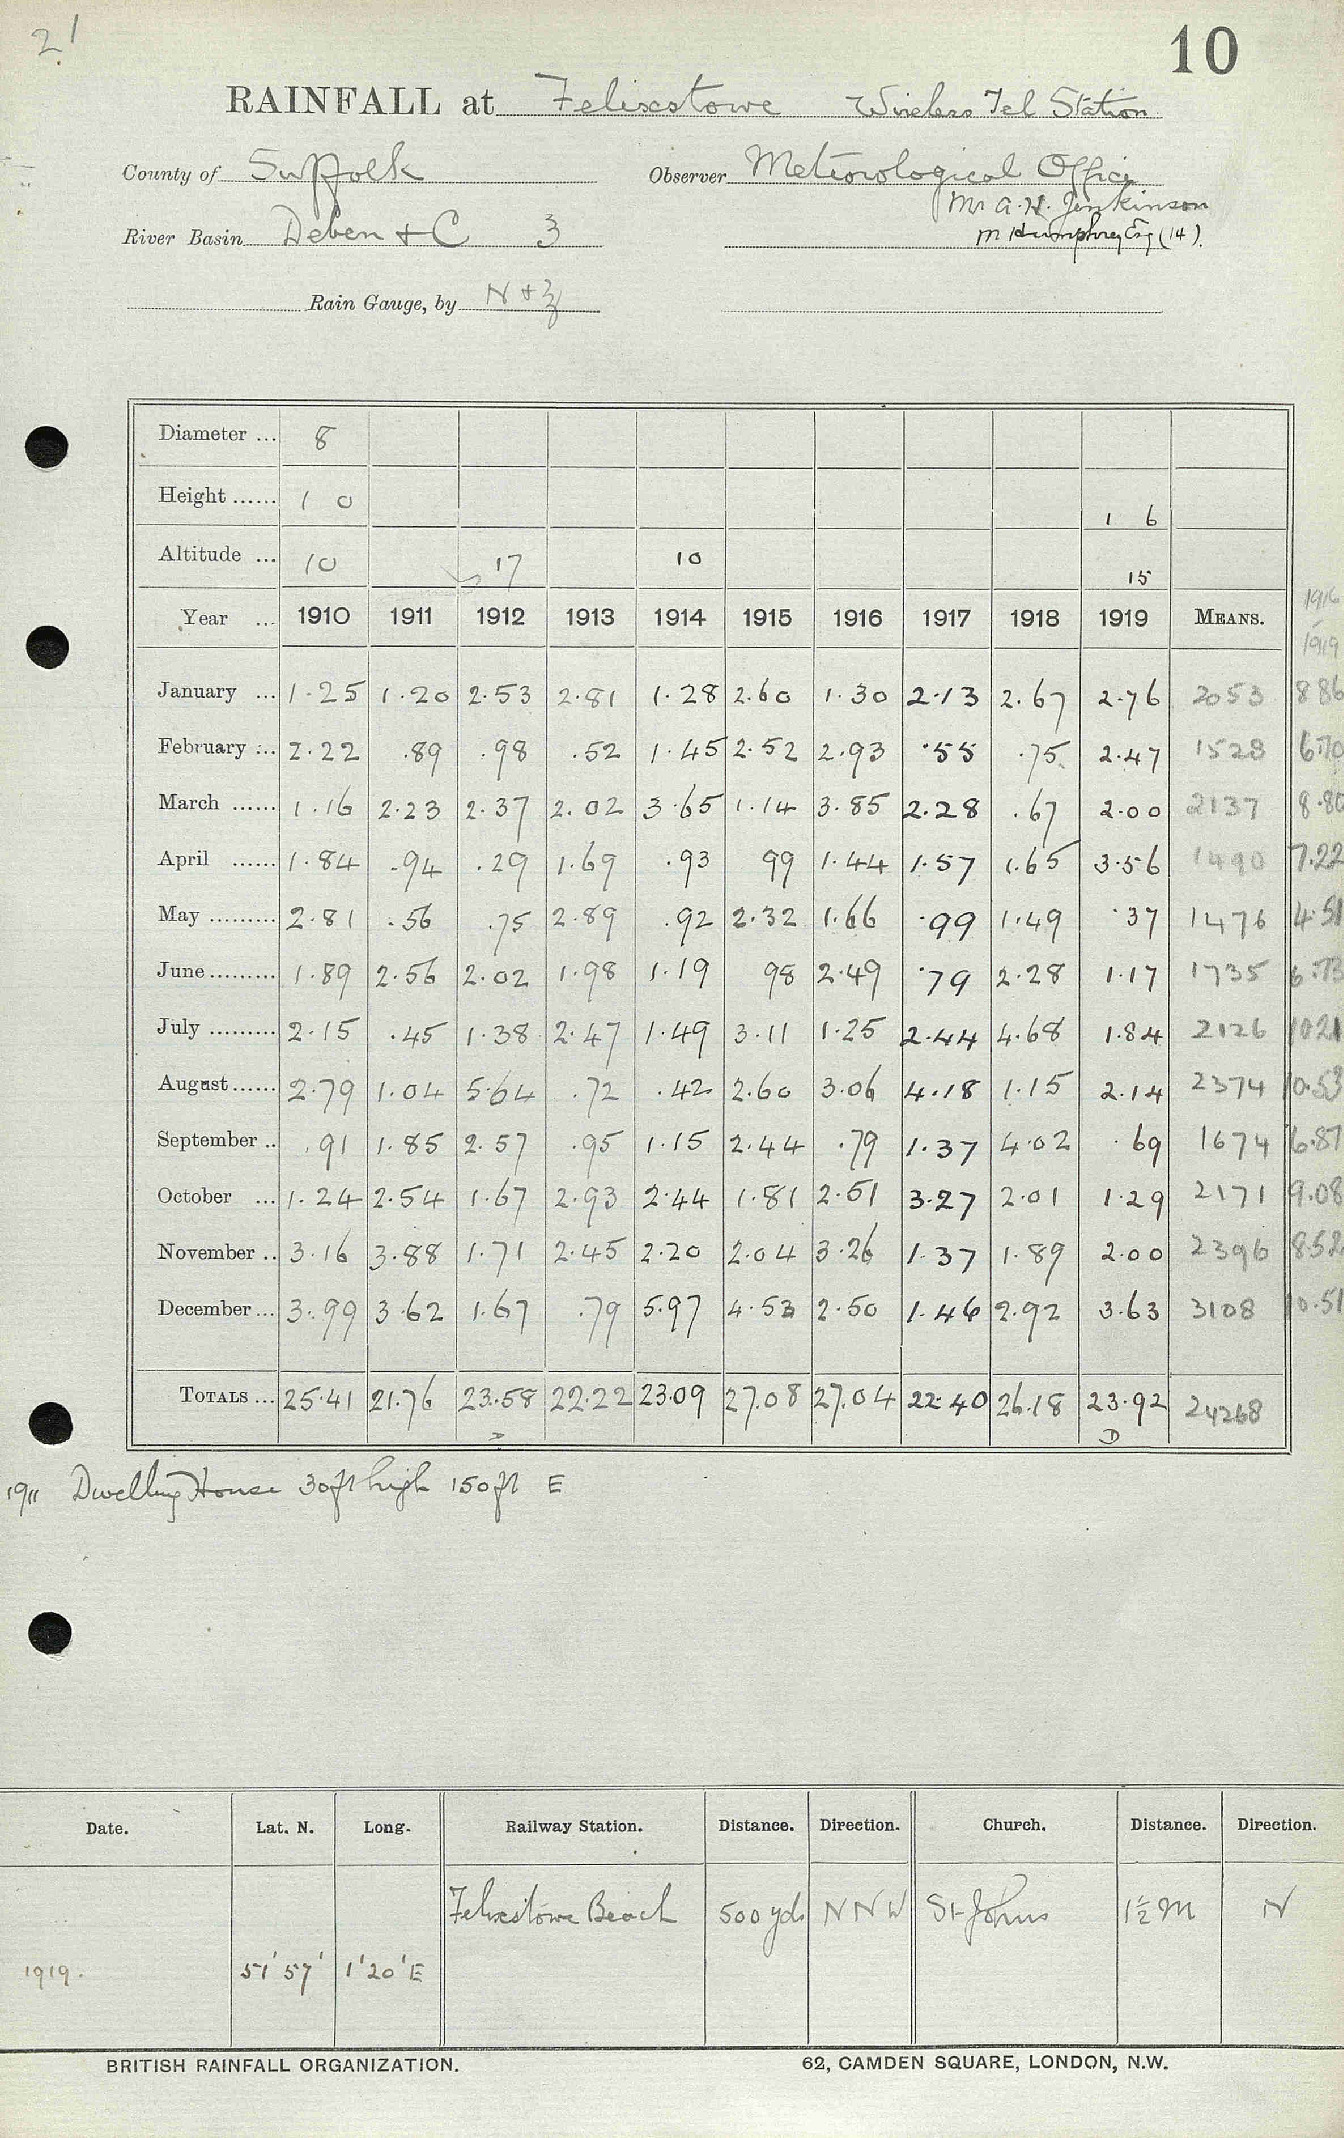 21
10
RAINFALL at Felixstowe Wireless Tel Station
County of Suffolk Observer Meteorological Office
Mr A. H. Jenkinson
River Basin Deben + C 3 M Humphrey Esq (14).
Rain Gauge, by N + Z
Diameter ... 8
Height ...... 1 0 1 6
Altitude ... 10 17 10 15
Year ... 1910 1911 1912 1913 1914 1915 1916 1917 1918 1919 MEANS. 1916 - 1919
January ... 1.25 1.20 2.53 2.81 1.28 2.60 1.30 2.13 2.67 2.76 2053 886
February ... 2.22 .89 .98 .52 1.45 2.52 2.93 .55 .75 2.47 1528 6.70
March ...... 1.16 2.23 2.37 2.02 3.65 1.14 3.85 2.28 .67 2.00 2137 8.80
April ...... 1.84 .94 .29 1.69 .93 99 1.44 1.57 1.65 3.56 1490 7.22
May ......... 2.81 .56 .75 2.89 .92 2.32 1.66 .99 1.49 .37 1476 4.51
June ......... 1.89 2.56 2.02 1.98 1.19 98 2.49 .79 2.28 1.17 1735 6.73
July ......... 2.15 .45 1.38 2.47 1.49 3.11 1.25 2.44 4.68 1.84 2126 1021
August ...... 2.79 1.04 5.64 .72 .42 2.60 3.06 4.18 1.15 2.14 2374 10.53
September .. .91 1.85 2.57 .95 1.15 2.44 .79 1.37 4.02 .69 1674 6.87
October ... 1.24 2.54 1.67 2.93 2.44 1.81 2.51 3.27 2.01 1.29 2171 9.08
November .. 3.16 3.88 1.71 2.45 2.20 2.04 3.26 1.37 1.89 2.00 2396 8.52
December ... 3.99 3.62 1.67 .79 5.97 4.53 2.50 1.46 2.92 3.63 3108 10.51
TOTALS ... 25.41 21.76 23.58 22.22 23.09 27.08 27.04 22.40 26.18 23.92 24268
D
1911 Dwelling House 30ft high 150ft E
Date. Lat. N. Long. Railway Station. Distance. Direction. Church. Distance. Direction.
Felixstowe Beach 500 yds N N W St Johns 1½ M N
1919. 51' 57' 1' 20' E
BRITISH RAINFALL ORGANIZATION. 62, CAMDEN SQUARE, LONDON, N.W.